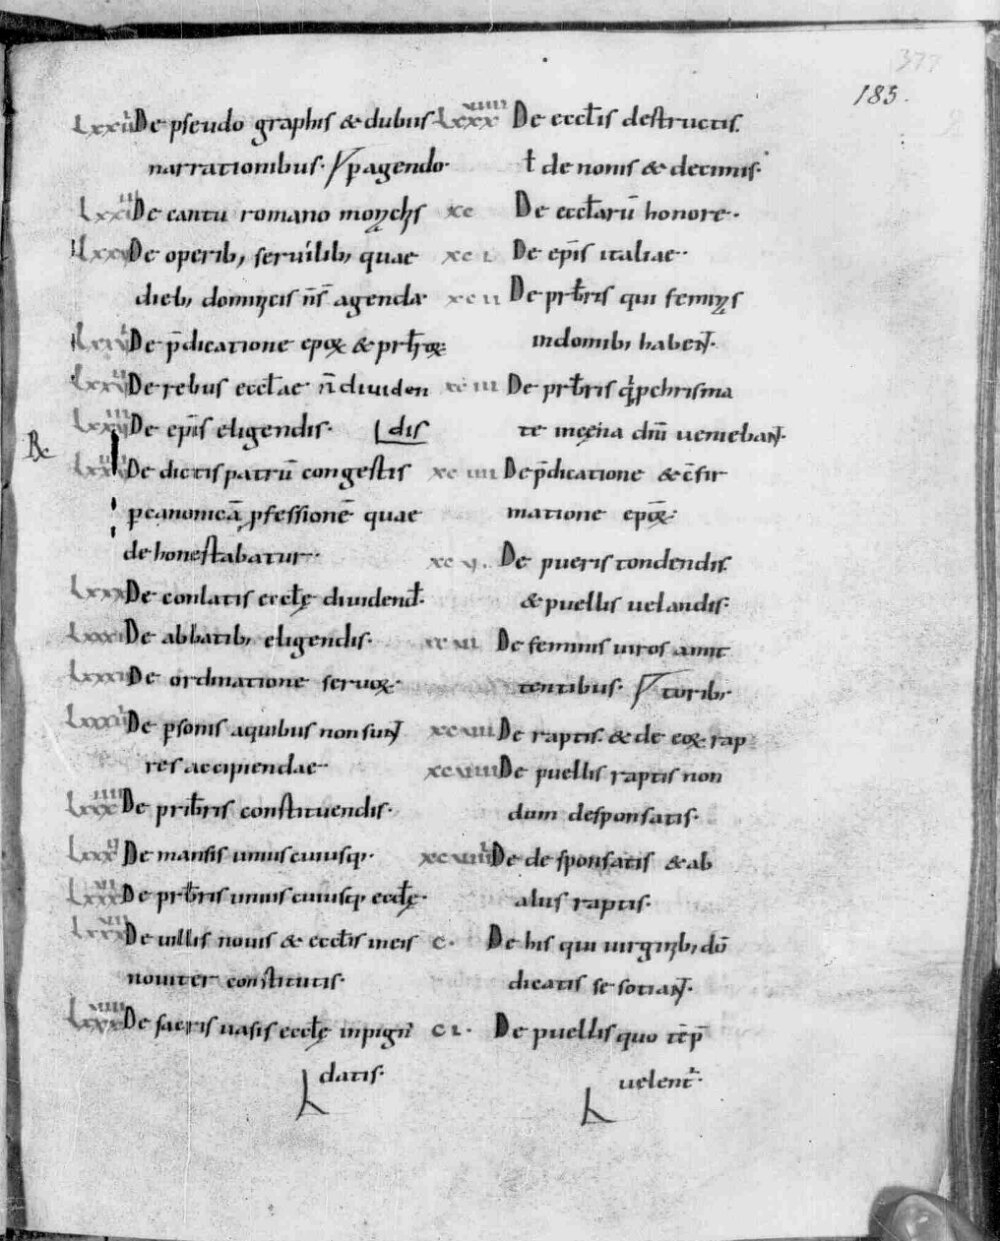 377
183.
De pseudo graphis & dubiis
narrationibus. p̄agendo.
De cantu romano monachis
De operib; seruilib; quae
dieb; dominicis n̄s̄ agenda
De p̄dicatione epoꝝ & prb̄roꝝ:
De rebus eccłae n̄ diuiden
De ep̄is eligendis. dis
De dictis patrū congestis
ꝑcanonicā ꝓfessionē quae
dehonestabatur.
Lxxx De conlatis eccłę diuidend̄.
Lxxxi De abbatib; eligendis.
Lxxxii De ordinatione seruoꝝ.
Lxxxiii De ꝑsonis aquibus non sunt
res accipiendae
Lxxxiiii De prb̄ris constituendis.
Lxxxv De mansis uniuscuiusq;.
Lxxxvi De prb̄ris uniuscuiusq; eccłę.
Lxxxvii De uillis nouis & eccłis ineis
nouiter constitutis.
Lxxxviii De sacris uasis eccłę inpign
datis.
Lxxxviiii De eccłis destructis.
ł de nonis & decimis.
xc De eccłarū honore.
xc i De ep̄is italiae.
xc ii De prb̄ris qui feminas
indomib; habent.
xc iii De prb̄ris qui ꝑchrisma
te incena dn̄i ueniebant.
xc iiii De p̄dicatione & c̄fir
matione epoꝝ:
xc v. De pueris tondendis
& puellis uelandis.
xc vi De feminis uiros amit
tentibus. torib;
xc vii De raptis. & de eoꝝ rap
xc viii De puellis raptis non
dum desponsatis.
xc viiii De desponsatis & ab
aliis raptis.
c. De his qui uirginib; dō
dicatis se sotiant.
c i. De puellis quo tēp̄
uelent̄.